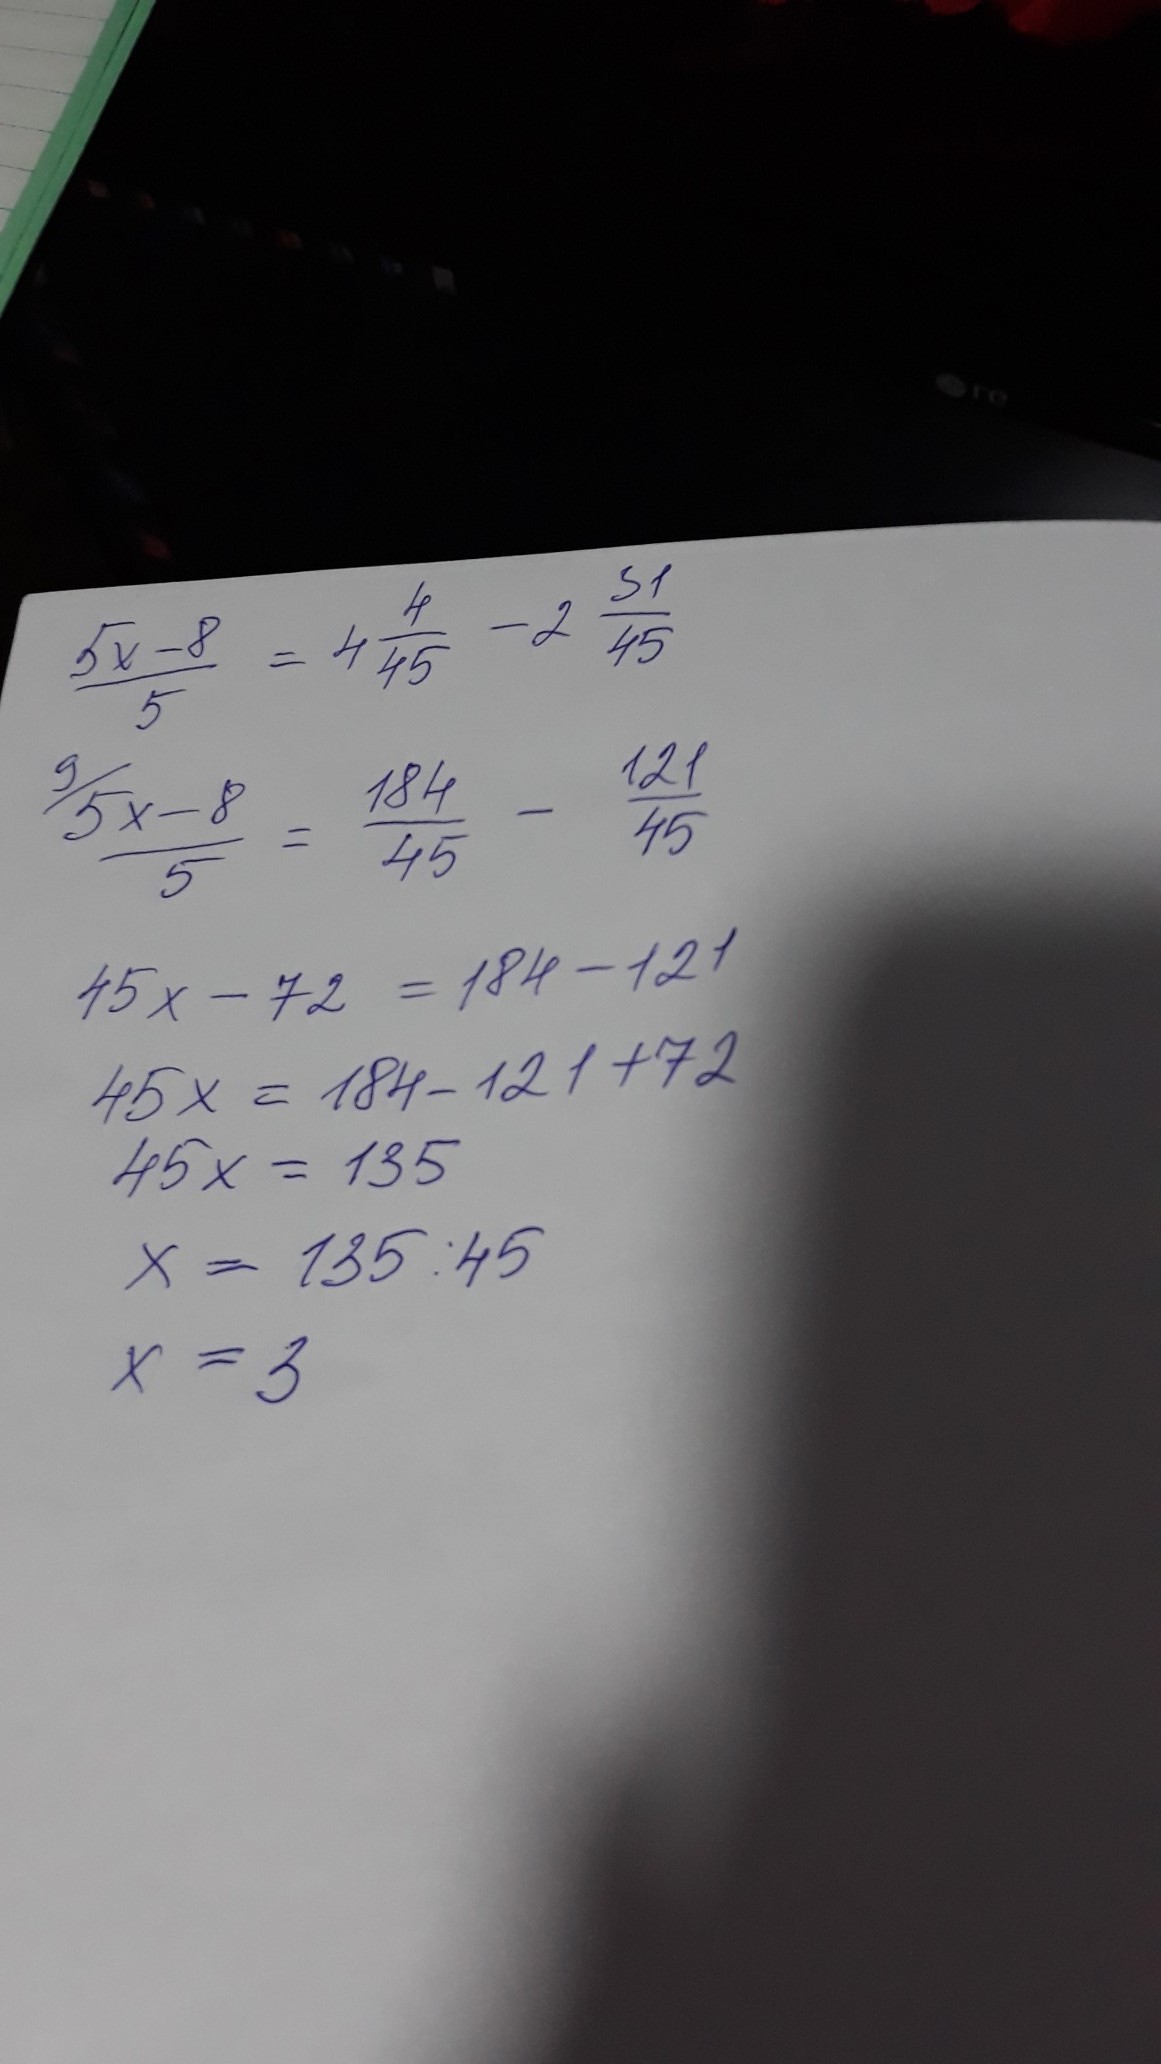 (5x-8)/5 = 4 4/45 - 2 31/45
9/ (5x-8)/5 = 184/45 - 121/45
45x - 72 = 184 - 121
45x = 184 - 121 + 72
45x = 135
x = 135 : 45
x = 3